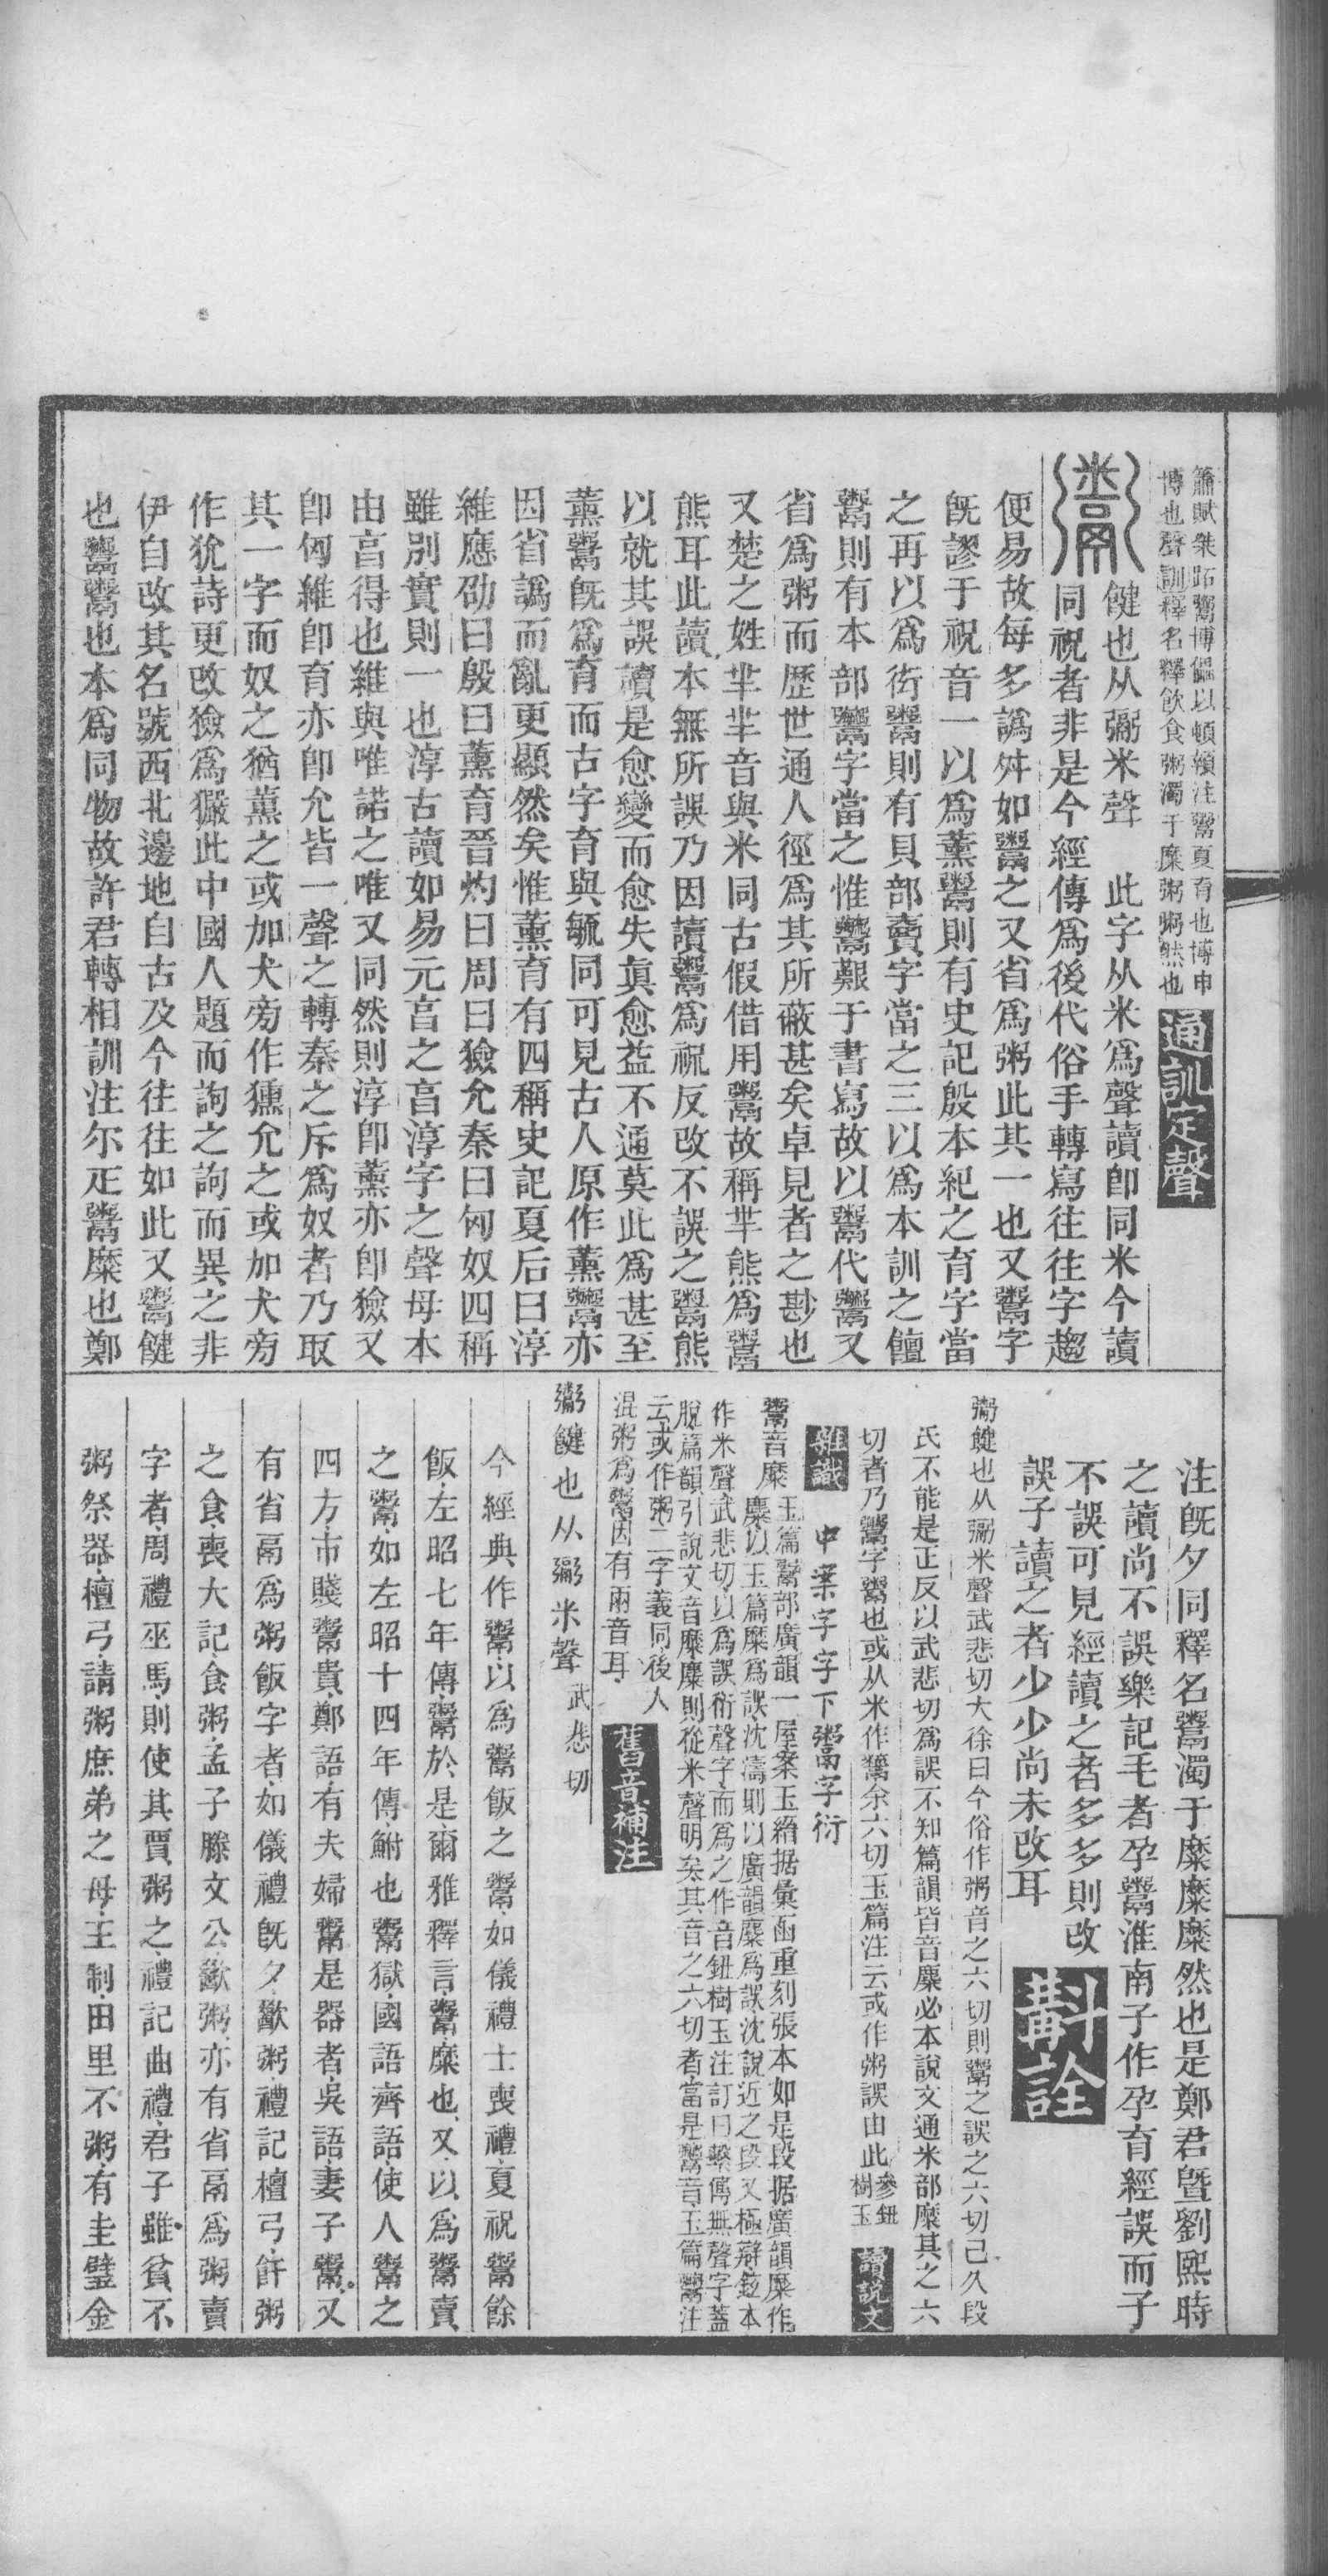 簫賦桀跖鬻博儡以頓顇注鬻夏育也博申
博也聲訓釋名釋飲食粥濁于糜粥粥然也
通訓定聲
鬻
䭈也从䰜米聲　此字从米爲聲讀卽同米今讀
同祝者非是今經傳爲後代俗手轉寫往往字趨
便易故每多譌舛如鬻之又省爲粥此其一也又鬻字
旣謬于祝音一以爲薰鬻則有史記殷本紀之育字當
之再以爲衒鬻則有貝部賣字當之三以爲本訓之饘
鬻則有本部鬻字當之惟鬻艱于書寫故以鬻代鬻又
省爲粥而歷世通人徑爲其所蔽甚矣卓見者之尠也
又楚之姓羋羋音與米同古假借用鬻故稱羋熊爲鬻
熊耳此讀本無所誤乃因讀鬻爲祝反改不誤之鬻熊
以就其誤讀是愈變而愈失眞愈益不通莫此爲甚至
薰鬻旣爲育而古字育與毓同可見古人原作薰鬻亦
因省譌而亂更顯然矣惟薰育有四稱史記夏后曰淳
維應劭曰殷曰薰育晉灼曰周曰獫允秦曰匈奴四稱
雖別實則一也淳古讀如易元亯之亯淳字之聲母本
由亯得也維與唯諾之唯又同然則淳卽薰亦卽獫又
卽匈維卽育亦卽允皆一聲之轉秦之斥爲奴者乃取
其一字而奴之猶薰之或加犬旁作獯允之或加犬旁
作狁詩更改獫爲玁此中國人題而詢之詢而異之非
伊自改其名號西北邊地自古及今往往如此又鬻䭈
也鬻鬻也本爲同物故許君轉相訓注尔疋鬻糜也鄭
注旣夕同釋名鬻濁于糜糜糜然也是鄭君曁劉熙時
之讀尙不誤樂記毛者孕鬻淮南子作孕育經誤而子
不誤可見經讀之者多多則改
誤子讀之者少少尙未改耳
斠詮
鬻䭈也从䰜米聲武悲切大徐曰今俗作粥音之六切則鬻之誤之六切已久段
氏不能是正反以武悲切爲誤不知篇韻皆音麋必本說文通米部糜其之六
切者乃鬻字鬻也或从米作鬻余六切玉篇注云或作粥誤由此參鈕
樹玉
讀說文
雜識
中葉字字下鬻字衍
鬻音糜
玉篇鬻部廣韻一屋案玉篇据彙函重刻張本如是段据廣韻糜作
麋以玉篇糜爲誤沈濤則以廣韻麋爲誤沈說近之段又極辯鉉本
作米聲武悲切以爲誤衍聲字而爲之作音鈕樹玉注訂曰繫傳無聲字蓋
脫篇韻引說文音糜麋則從米聲明矣其音之六切者當是鬻音玉篇鬻注
云或作粥二字義同後人
混粥爲鬻因有兩音耳
舊音補注
鬻䭈也从䰜米聲武悲切
今經典作鬻以爲鬻飯之鬻如儀禮士喪禮夏祝鬻餘
飯左昭七年傳鬻於是爾雅釋言鬻糜也又以爲鬻賣
之鬻如左昭十四年傳鮒也鬻獄國語齊語使人鬻之
四方市賤鬻貴鄭語有夫婦鬻是器者吳語妻子鬻又
有省鬲爲粥飯字者如儀禮旣夕歠粥禮記檀弓饘粥
之食喪大記食粥孟子滕文公歠粥亦有省鬲爲粥賣
字者周禮巫馬則使其賈粥之禮記曲禮君子雖貧不
粥祭器檀弓請粥庶弟之母王制田里不粥有圭璧金